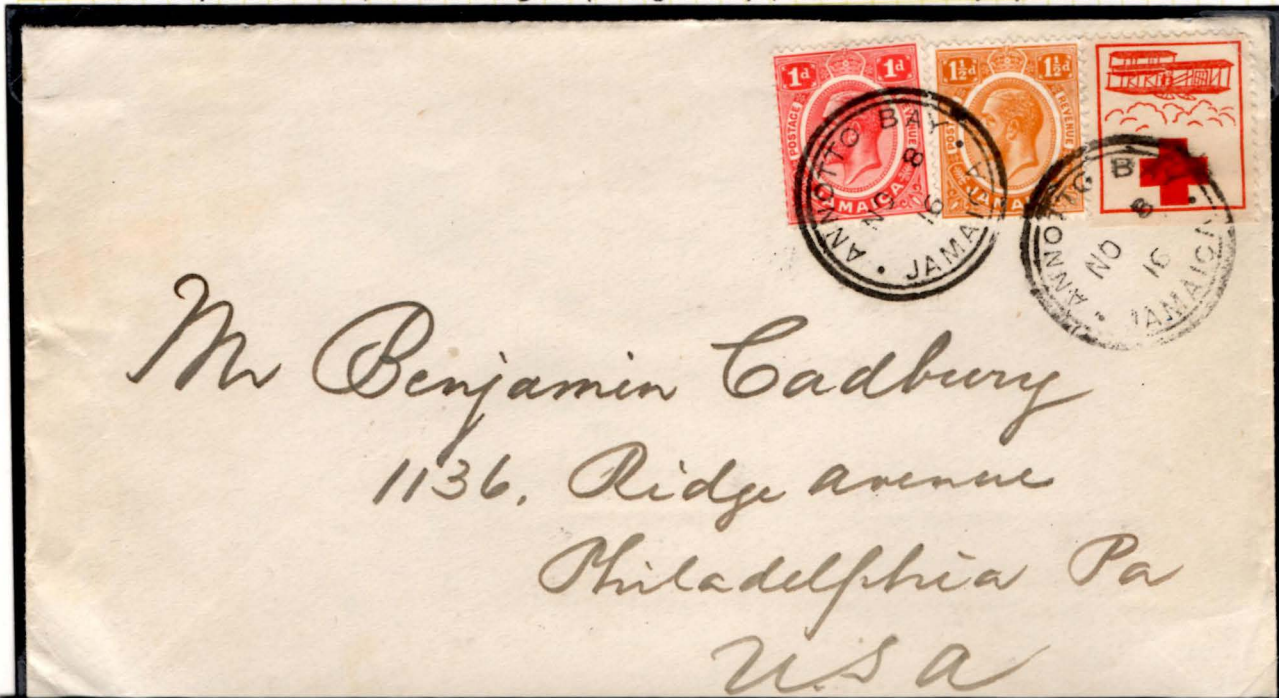 1d 1d
POSTAGE REVENUE
JAMAICA
1½d 1½d
REVENUE
JAMAICA
ANNOTTO BAY
8
NO
16
JAMAICA
ANNOTTO B
8
NO
16
JAMAICA
Mr Benjamin Cadbury
1136. Ridge Avenue
Philadelphia Pa
U.S.A